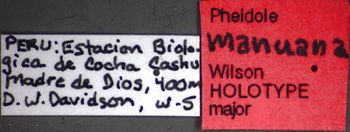 PERU: Estacion Biolo-
gica de Cocha Cashu
Madre de Dios, 400m
D.W. Davidson, w-5
Pheidole
manuana
Wilson
HOLOTYPE
major